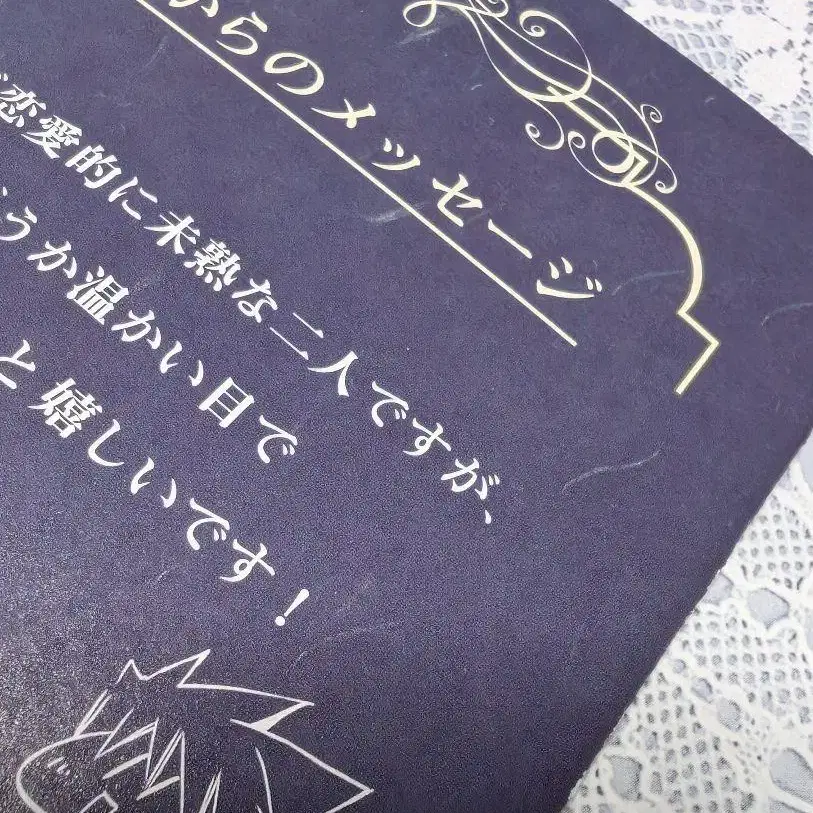 からのメッセージ
恋愛的に未熟な二人ですが、
うか温かい目で
と嬉しいです！